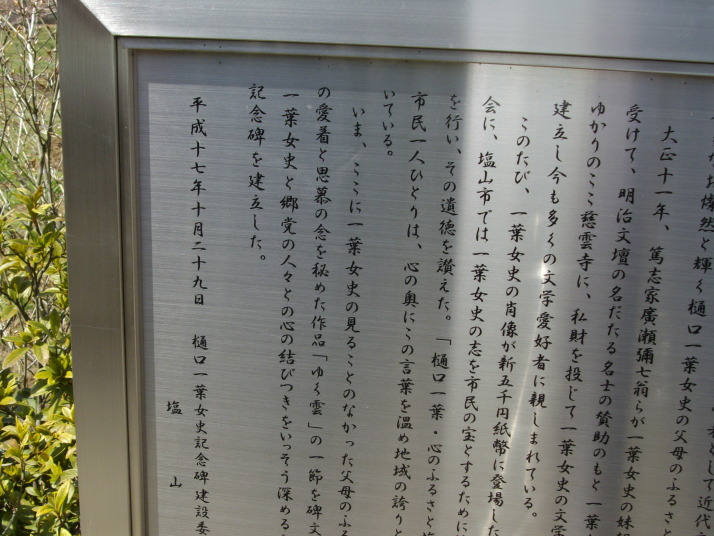 お燦然と輝く樋口一葉女史の父母のふるさと
大正十一年、篤志家廣瀬彌七翁らが一葉女史の妹
受けて、明治文壇の名だたる名士の賛助のもと一葉
ゆかりのここ慈雲寺に、私財を投じて一葉女史の文学
建立し今も多くの文学愛好者に親しまれている。
このたび、一葉女史の肖像が新五千円紙幣に登場した
会に、塩山市では一葉女史の志を市民の宝とするために
を行い、その遺徳を讃えた。「樋口一葉・心のふるさと
市民一人ひとりは、心の奥にこの言葉を温め地域の誇りと
いている。
いま、ここに一葉女史の見ることのなかった父母のふる
の愛着と思慕の念を秘めた作品「ゆく雲」の一節を碑文
一葉女史と郷党の人々との心の結びつきをいっそう深める
記念碑を建立した。
平成十七年十月二十九日 樋口一葉女史記念碑建設委
塩山